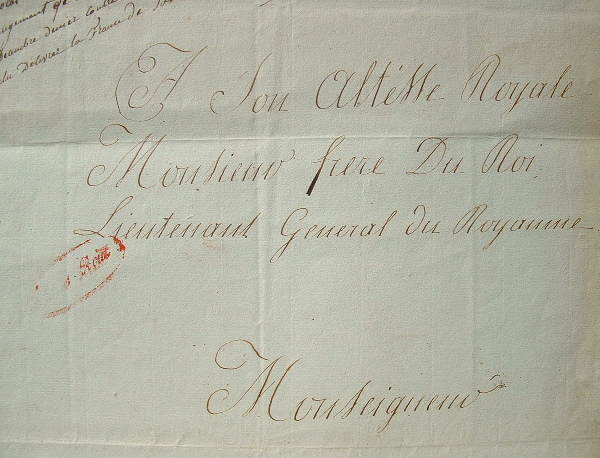 décembre dernier contre
délivrer la France de
A Son Altésse Royale
Monsieur frere Du Roi,
Lieutenant General du Royaume
Monseigneur